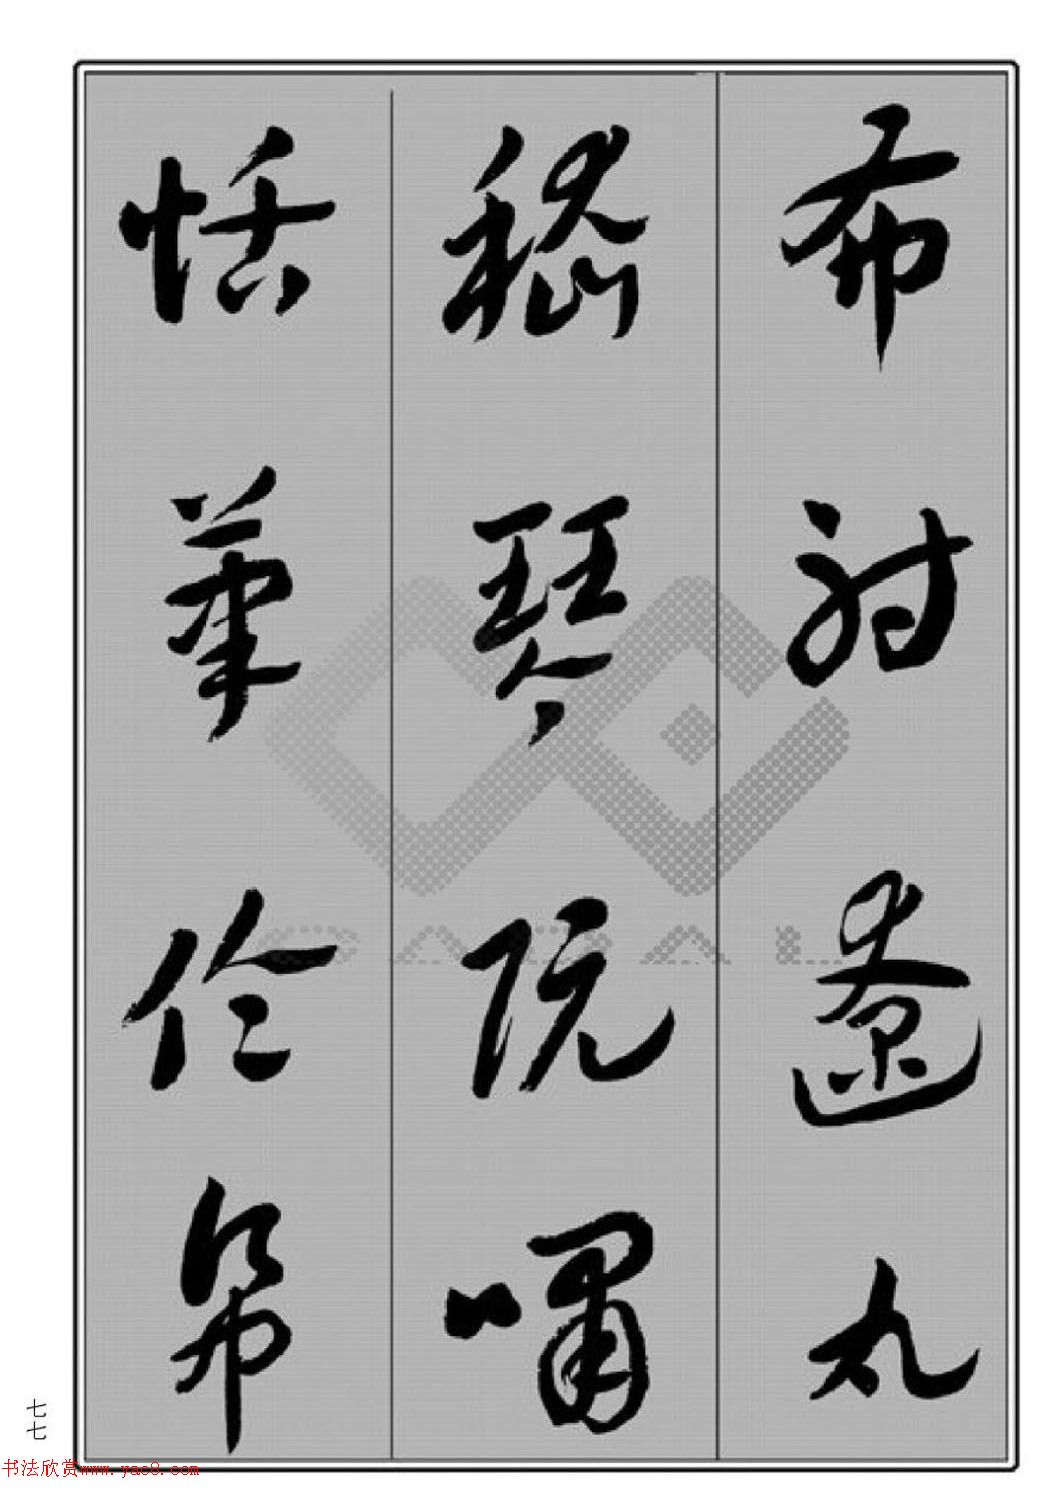 布射遼丸
嵇琴阮嘯
恬筆倫帋
七七
书法欣赏www.yac8.com